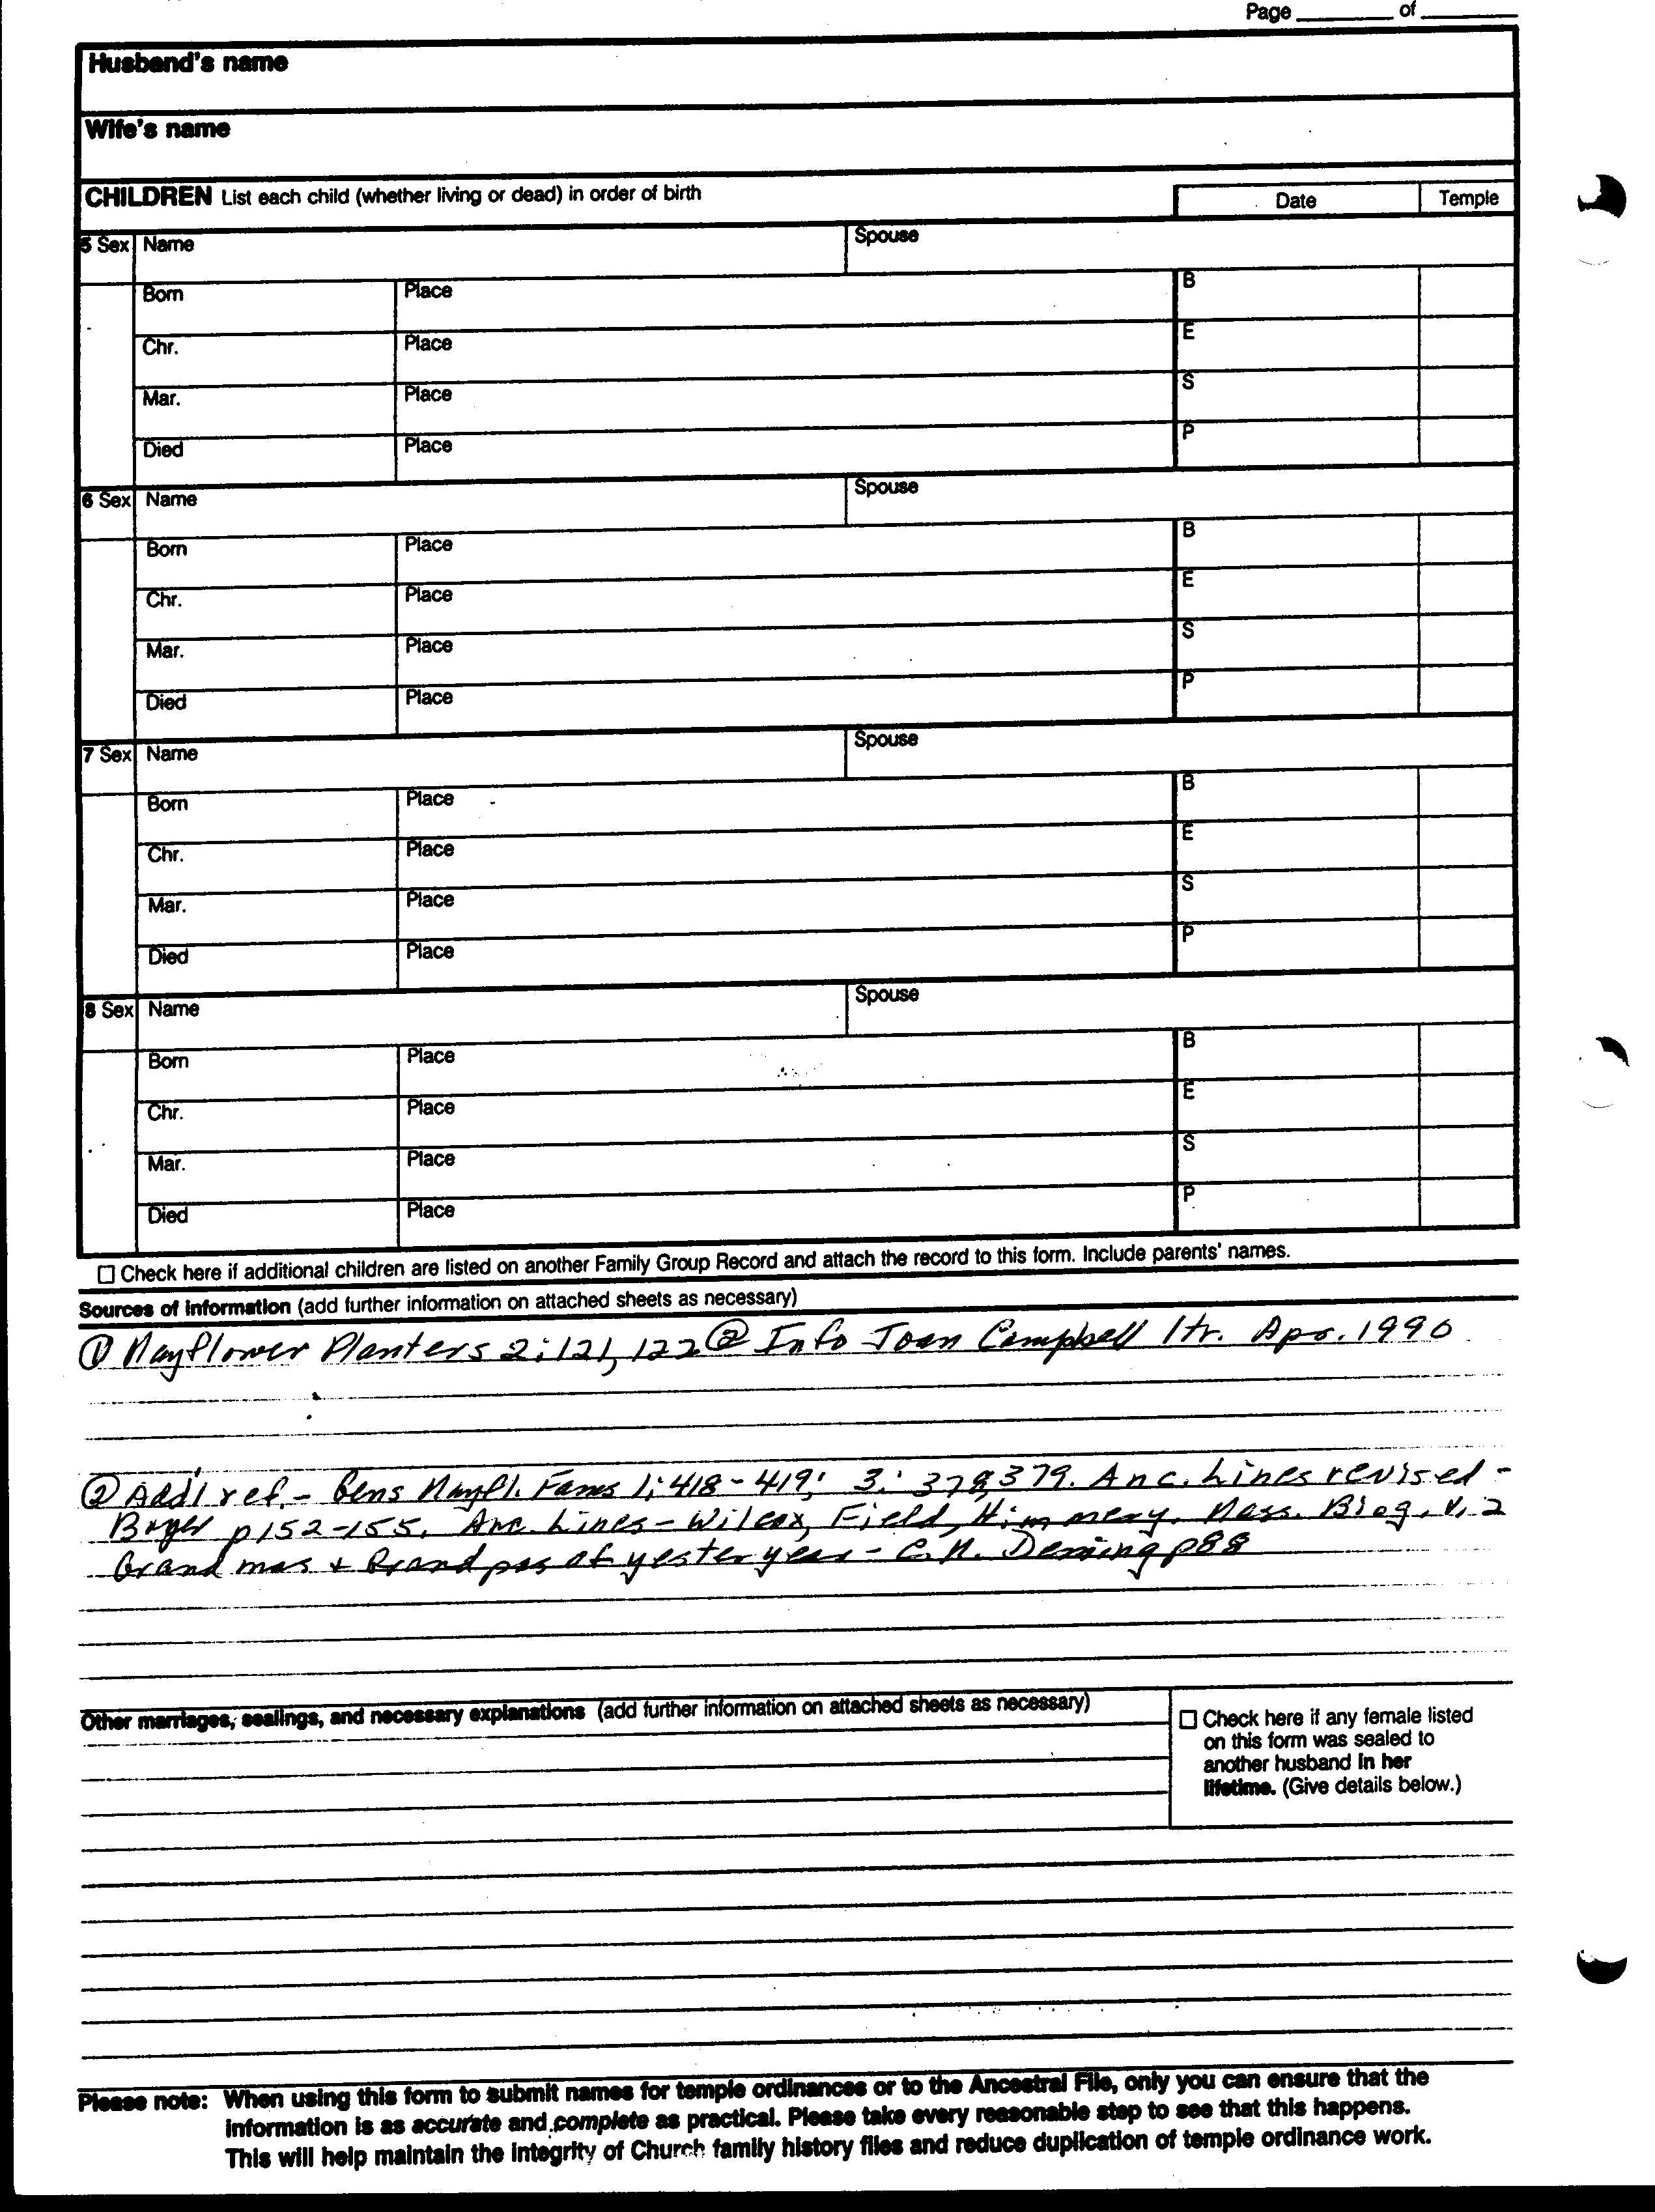 Page ______ of ______
Husband's name
Wife's name
CHILDREN List each child (whether living or dead) in order of birth
Date Temple
5 Sex Name Spouse
Born Place B
Chr. Place E
Mar. Place S
Died Place P
6 Sex Name Spouse
Born Place B
Chr. Place E
Mar. Place S
Died Place P
7 Sex Name Spouse
Born Place B
Chr. Place E
Mar. Place S
Died Place P
8 Sex Name Spouse
Born Place B
Chr. Place E
Mar. Place S
Died Place P
☐ Check here if additional children are listed on another Family Group Record and attach the record to this form. Include parents' names.
Sources of information (add further information on attached sheets as necessary)
① Mayflower Planters 2:121, 122 ② Info Joan Campbell ltr. Apr. 1990
② Add'l ref. - Gens Mayfl. Fams 1:418-419; 3: 378, 379. Anc. Lines revised -
p152-155. Anc. Lines - Wilcox, Field, Mass. Biog. V. 2
Grandmas + Grandpas of yesteryear - C. N. Deming p88
Other marriages, sealings, and necessary explanations (add further information on attached sheets as necessary)
☐ Check here if any female listed
on this form was sealed to
another husband in her
lifetime. (Give details below.)
Please note: When using this form to submit names for temple ordinances or to the Ancestral File, only you can ensure that the
information is as accurate and complete as practical. Please take every reasonable step to see that this happens.
This will help maintain the integrity of Church family history files and reduce duplication of temple ordinance work.